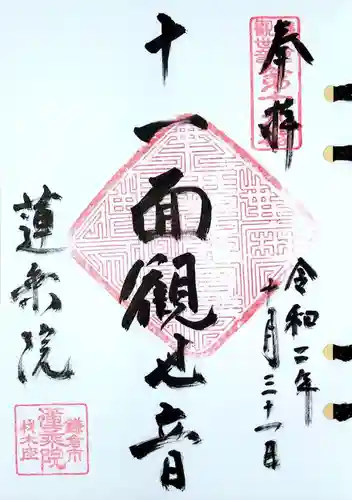 奉拝
十一面観世音
令和二年
十月三十一日
蓮乗院
鎌倉市
蓮乗院
材木座